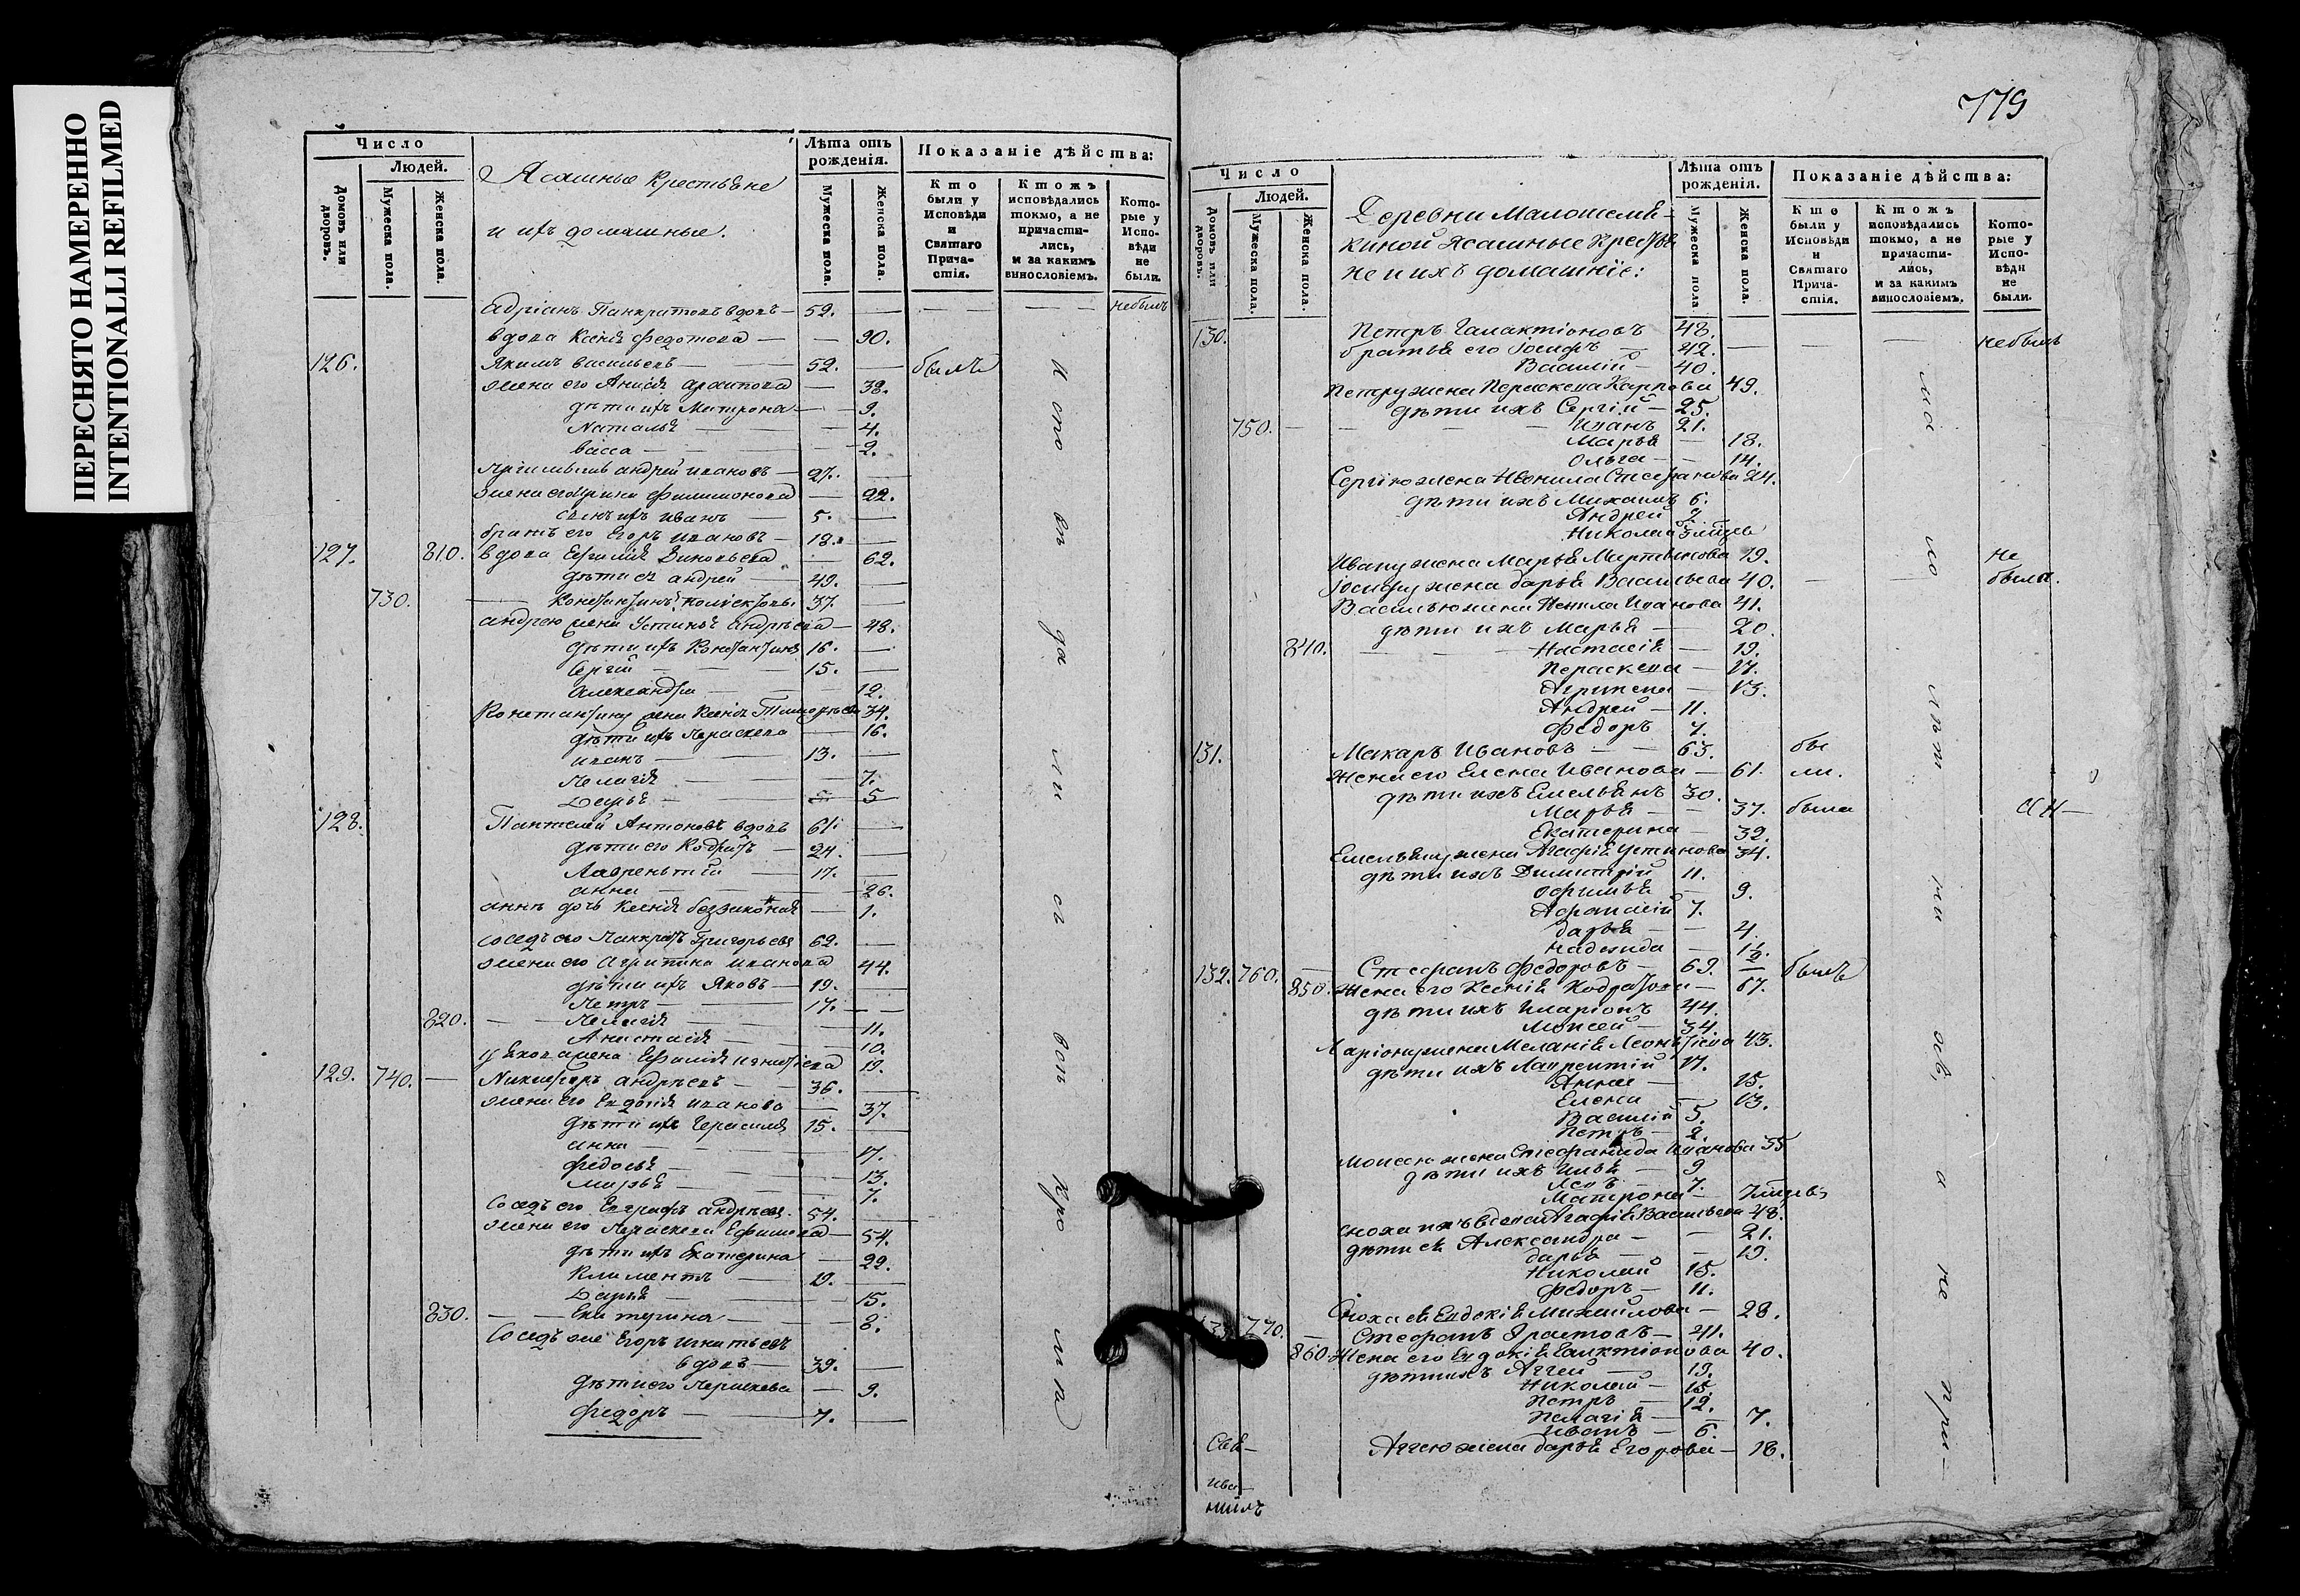 ПЕРЕСНЯТО НАМЕРЕННО
INTENTIONALLI REFILMED
Число
Людей.
Домовъ или дворовъ.
Мужеска пола.
Женска пола.
Ясашные Крестьяне
и ихъ домашные.
Лѣта отъ рожденія.
Мужеска пола.
Женска пола.
Показаніе дѣйства:
Кто были у Исповѣди и Святаго Прича-стія.
Ктожъ исповѣдались токмо, а не причасти-лись, и за какимъ винословіемъ.
Кото-рые у Испо-вѣди не были.
Адріанъ Панкратовъ вдовъ — 59. — небылъ
вдова Ксенія Федотова — 90.
126. Якимъ Васильевъ — 52. — былъ
жена его Анисія — 38.
дѣти ихъ Матрона — 9.
Наталья — 4.
Васса — 2.
Андрей Ивановъ — 27.
жена его Филимонова — 22.
сынъ ихъ Иванъ — 5.
братъ его Егоръ Ивановъ — 18.
127. 810. вдова Ефимія — 62.
дѣти ея Андрей — 49.
730. Константинъ — 37.
Андрею жена Устинья Андрѣева — 48.
дѣти ихъ Константинъ 16.
Сергій — 15.
Александра — 12.
Константину жена Ксенія 34.
дѣти ихъ Параскева — 16.
Иванъ — 13.
Пелагія — 7.
Дарья — 5
128. Пантелей Антоновъ вдовъ 61.
дѣти его Кодратъ — 24.
Лаврентій — 17.
Анна — 26.
Аннѣ дочь Ксенія беззаконая — 1.
соседъ его Панкратъ Григорьевъ 62.
жена его Агрипина Иванова 44.
дѣти ихъ Яковъ — 19.
Петръ — 17.
820. Пелагія — 11.
Анастасія — 10.
Якова жена Ефимія Игнатіева 19.
129. 740. Никифоръ Андрѣевъ — 36.
жена его Евдокія Иванова — 37.
дѣти ихъ Герасимъ 15.
Анна — 17.
Федосья — 13.
Марья — 7.
Соседъ его Евграфъ Андрѣевъ 54.
жена его Параскева Ефимова — 54.
дѣти ихъ Екатерина — 22.
Климентъ — 19.
Дарья — 15.
830. Екатерина — 8.
Соседъ же Егоръ Игнатьевъ
вдовъ — 39.
дѣти его Параскева — 9.
Федоръ — 7.
779
Число
Людей.
Домовъ или дворовъ.
Мужеска пола.
Женска пола.
Деревни Малошемя-
киной Ясашные Крестья
не и ихъ домашніе:
Лѣта отъ рожденія.
Мужеска пола
Женска пола.
Показаніе дѣйства:
Кто были у Исповѣди и Святаго Прича-стія.
Ктожъ исповѣдались токмо, а не причасти-лись, и за какимъ винословіемъ.
Кото-рые у Испо-вѣди не были.
130. Петръ Галактіоновъ 48. — небылъ
братья его Іосифъ — 42.
Василій — 40.
Петру жена Пераскева Карпова 49.
дѣти ихъ Сергій — 25.
750. Иванъ 21.
Марья — 18.
Ольга — 14.
Сергію жена Неонила Стефанова 24.
дѣти ихъ Михаилъ 6.
Андрей 2
Николай
Ивану жена Марья Мартынова 19. не
Іосифу жена Дарья Васильева 40. — была.
Василью жена Ненила Иванова 41.
дѣти ихъ Марья — 20.
840. Настасія — 19.
Пераскева — 17.
Агрипена — 13.
Андрей — 11.
Федоръ 7.
131. Макаръ Ивановъ — 63. бы
Жена его Елена Иванова — 61. ли.
дѣти ихъ Емельянъ 30.
Марья — 37. была
Екатерина — 32.
Емельяну жена Агафія Устинова 34.
дѣти ихъ Димитрій 11.
Офимья — 9.
Афанасій 7.
Дарья — 4.
Надежда — 1½.
132. 760. Стефанъ Федоровъ — 69. былъ
850. Жена его Ксенія Кодратова — 67.
дѣти ихъ Иларіонъ 44.
Моисей — 34.
Ларіону жена Меланія Леонтіева 43.
дѣти ихъ Лаврентій 17.
Анна — 15.
Елена — 13.
Василій 5.
Петръ — 2.
Моисею жена Стефанида Иванова 35
дѣти ихъ Илья — 9
Яковъ — 7.
Матрона —
сноха ихъ вдова Агафія Васильева 48.
дѣти ея Александра — 21.
Дарья — 19.
Николай 15.
Федоръ — 11.
Сноха ея Евдокія Михайлова — 28.
770. Стефанъ — 41.
860. Жена его Евдокія Галактіонова 40.
дѣти ихъ Аггей — 19.
Николай — 15.
Петръ — 12.
Пелагія — 7.
Иванъ — 6.
Аггею жена Дарья Егорова — 18.